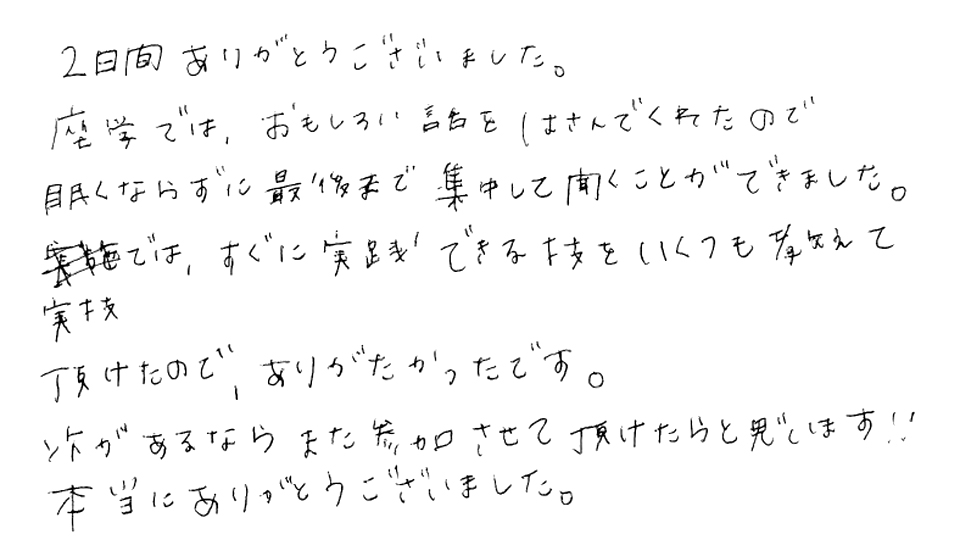 2日間ありがとうございました。
座学では、おもしろい話をはさんでくれたので
眠くならずに最後まで集中して聞くことができました。
では、すぐに実践できる技をいくつも教えて
実技
頂けたので、ありがたかったです。
次があるならまた参加させて頂けたらと思います!!
本当にありがとうございました。